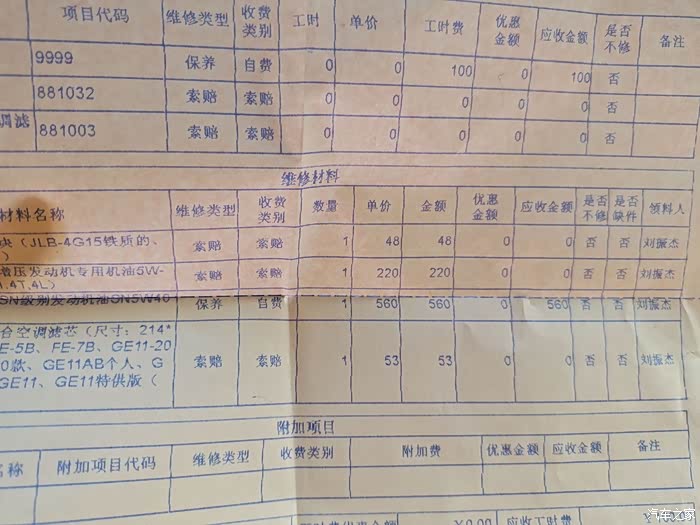 项目代码 维修类型 收费类别 工时 单价 工时费 优惠金额 应收金额 是否不修 备注
9999 保养 自费 0 0 100 0 100 否
881032 索赔 索赔 0 0 0 0 0 否
调滤 881003 索赔 索赔 0 0 0 0 0 否
维修材料
材料名称 维修类型 收费类别 数量 单价 金额 优惠金额 应收金额 是否不修 是否缺件 领料人
(JLB-4G15铁质的、 索赔 索赔 1 48 48 0 0 否 否 刘振杰
)
增压发动机专用机油5W- 索赔 索赔 1 220 220 0 0 否 否 刘振杰
,4T,4L)
SN级别发动机油SN5W40 保养 自费 1 560 560 0 560 否 否 刘振杰
合空调滤芯(尺寸:214*
E-5B、FE-7B、GE11-20
0款、GE11AB个人、G 索赔 索赔 1 53 53 0 0 否 否 刘振杰
GE11、GE11特供版(
附加项目
名称 附加项目代码 维修类型 收费类别 附加费 优惠金额 应收金额 备注
工时费优惠金额 ¥0.00 应收工时费
汽车之家